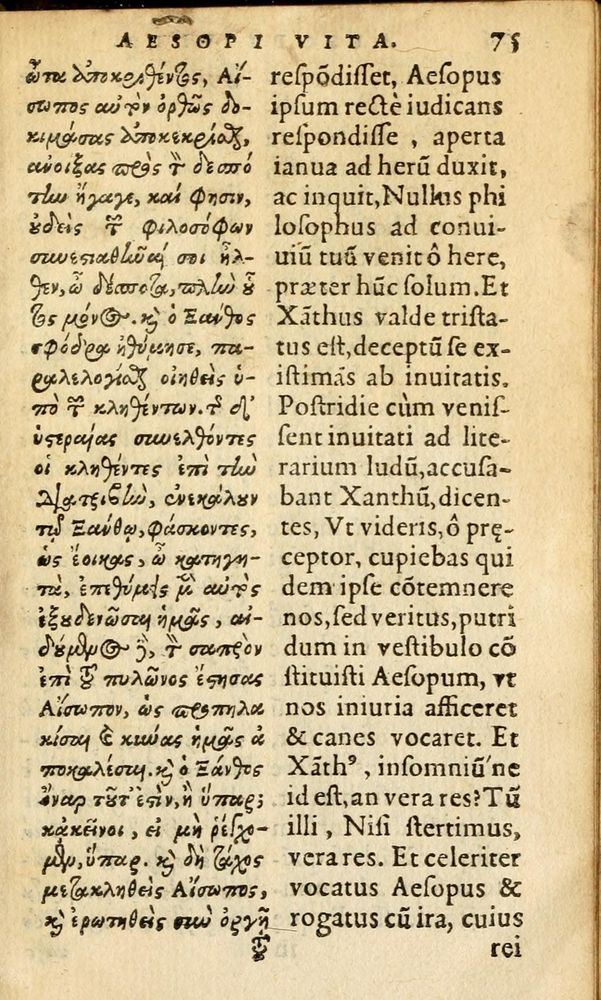 AESOPI VITA. 75
ὦτα ἀποκριθέντος, Αἴ-
σωπος αὐτὸν ὀρθῶς δο-
κιμάσας ἀποκεκρίσθαι,
ἀνοίξας πρὸς τὸν δεσπό
την ἤγαγε, καί φησιν,
οὐδεὶς τῶν φιλοσόφων
συνεστιαθῆναί σοι ἦλ-
θεν, ὦ δέσποτα, πλὴν οὗ
τος μόνος. καὶ ὁ Ξανθος
σφόδρα ἠθύμησε, πα-
ραλελογίσθαι οἰηθεὶς ὑ-
πὸ τῶν κληθέντων. τῇ δ'
ὑστεραίας συνελθόντες
οἱ κληθέντες ἐπὶ τὴν
Διατριβὴν, ἐνεκάλουν
τῷ Ξανθῳ, φάσκοντες,
ὡς ἔοικας, ὦ κατηγη-
τὰ, ἐπεθύμεις μὲν αὐτὸς
ἐξουδενῶσαι ἡμᾶς, αἰ-
δούμενος δὲ, τὸν σαπρὸν
ἐπὶ τοῦ πυλῶνος ἔστησας
Αἴσωπον, ὡς προπηλα
κίσαι καὶ κύνας ἡμᾶς ἀ
ποκαλέσαι. καὶ ὁ Ξάνθος
ὄναρ τοῦτ' ἐστὶν, ἢ ὕπαρ;
κἀκεῖνοι, εἰ μὴ ῥέγχο-
μεν, ὕπαρ. καὶ δὴ τάχος
μετακληθεὶς Αἴσωπος,
καὶ ἐρωτηθεὶς σὺν ὀργῇ
τοῦ
respõdisset, Aesopus
ipsum rectè iudicans
respondisse, aperta
ianua ad herũ duxit,
ac inquit, Nullus phi
losophus ad conui-
uiũ tuũ venit ô here,
præter hũc solum. Et
Xãthus valde trista-
tus est, deceptũ se ex-
istimãs ab inuitatis.
Postridie cùm venis-
sent inuitati ad lite-
rarium ludũ, accusa-
bant Xanthũ, dicen-
tes, Vt videris, ô prę-
ceptor, cupiebas qui
dem ipse cõtemnere
nos, sed veritus, putri
dum in vestibulo cõ
stituisti Aesopum, vt
nos iniuria afficeret
& canes vocaret. Et
Xãthꝰ, insomniũ ne
id est, an vera res? Tũ
illi, Nisi stertimus,
vera res. Et celeriter
vocatus Aesopus &
rogatus cũ ira, cuius
rei